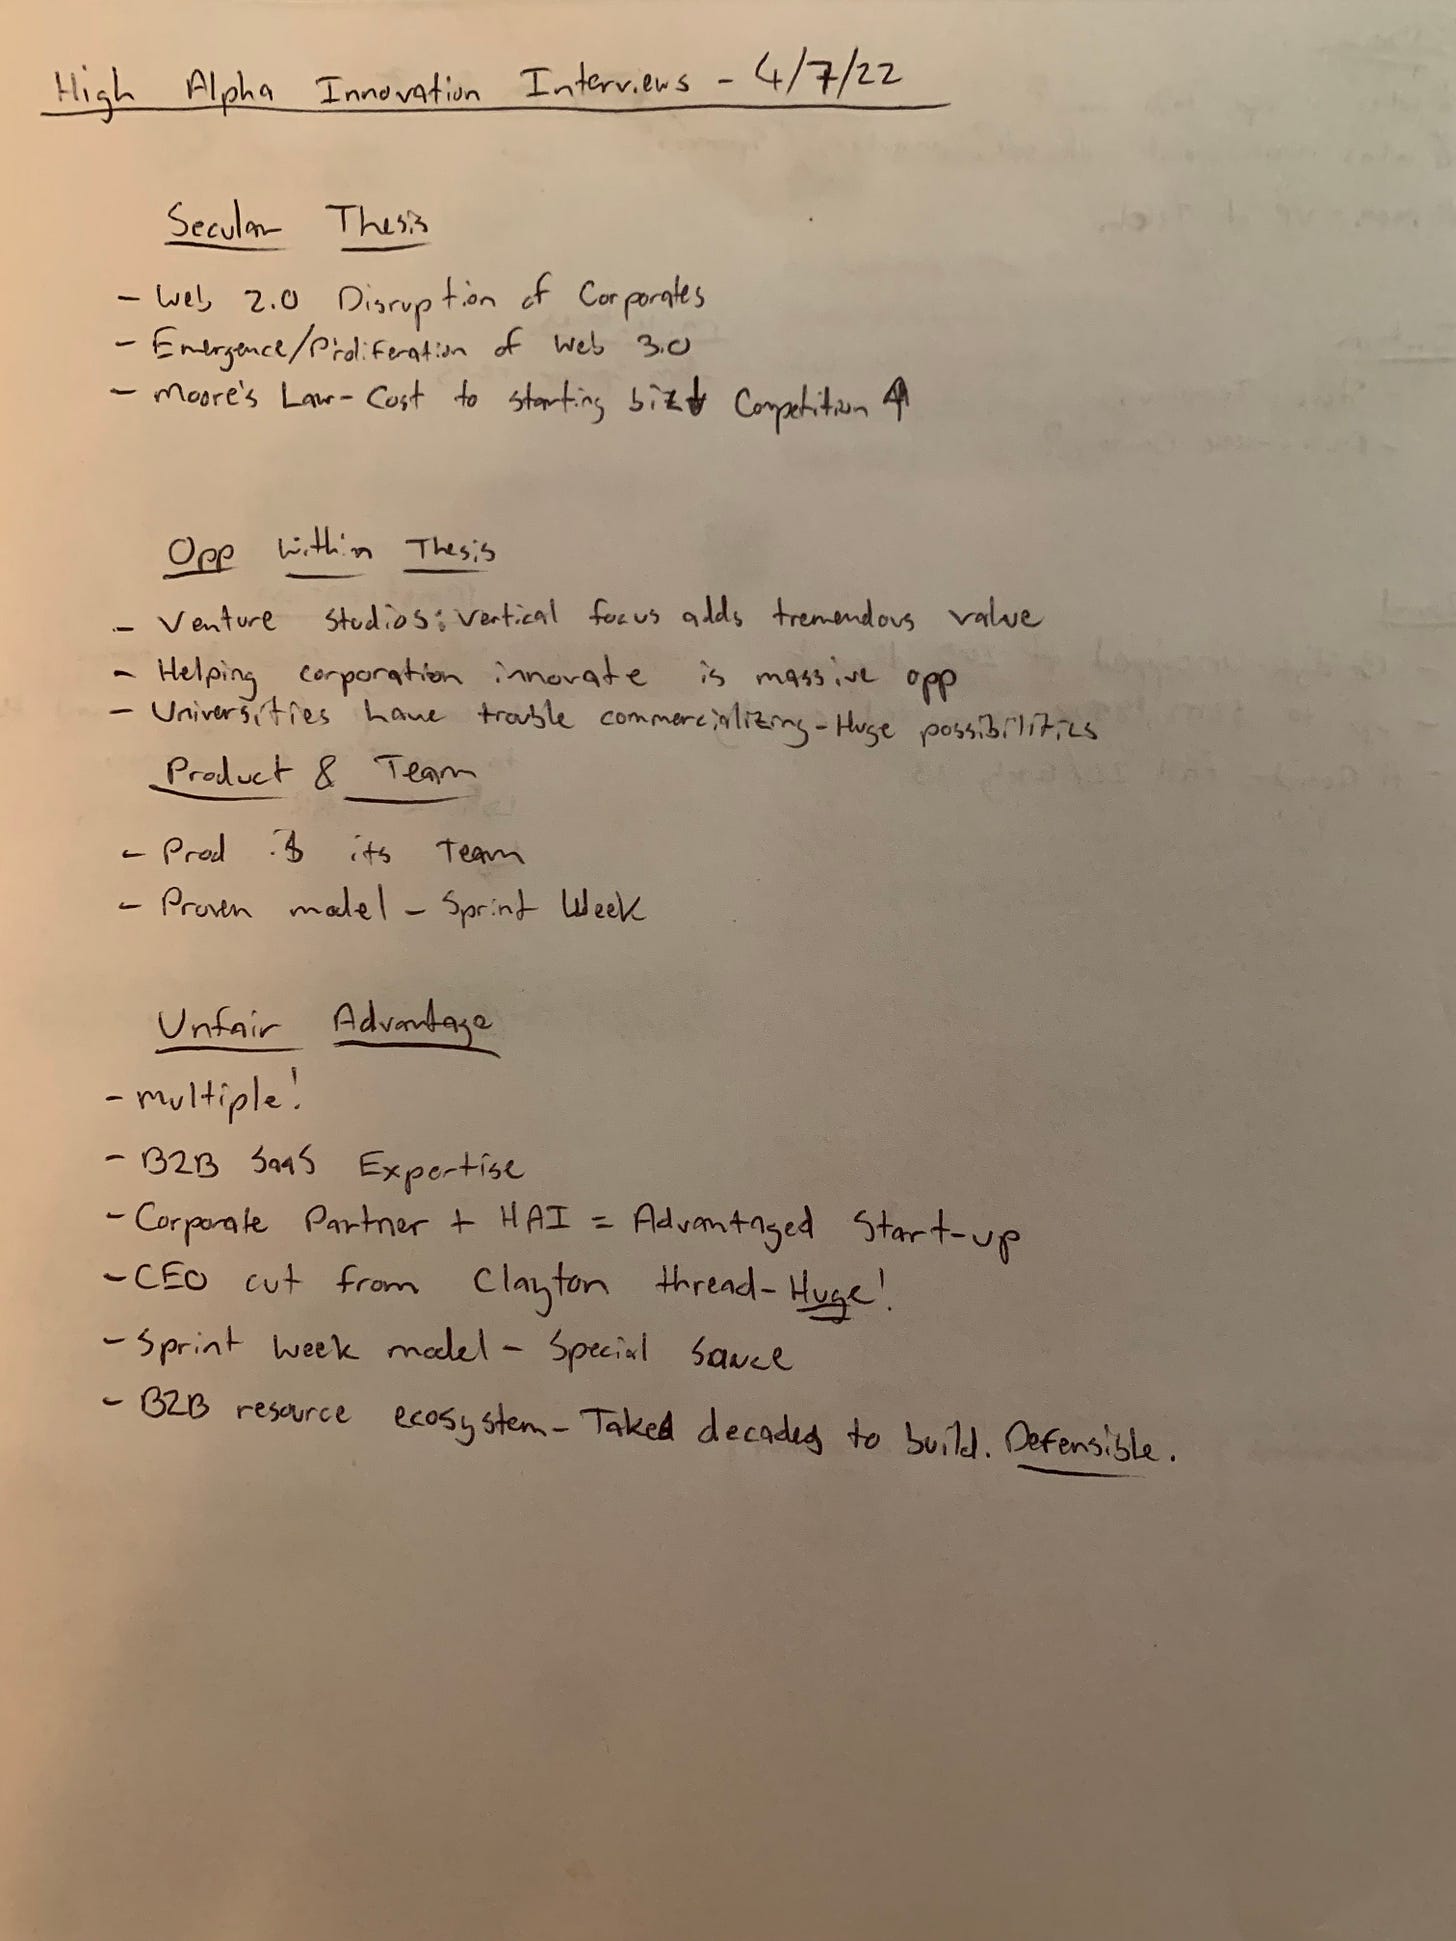 High Alpha Innovation Interviews - 4/7/22
Secular Thesis
- Web 2.0 Disruption of Corporates
- Emergence/Proliferation of Web 3.0
- Moore's Law - Cost to starting biz ↓ Competition ↑
Opp Within Thesis
- Venture Studios: Vertical focus adds tremendous value
- Helping corporation innovate is massive opp
- Universities have trouble commercializing - Huge possibilities
Product & Team
- Prod is its Team
- Proven model - Sprint Week
Unfair Advantage
- Multiple!
- B2B SaaS Expertise
- Corporate Partner + HAI = Advantaged Start-up
- CEO cut from Clayton thread - Huge!
- Sprint Week model - Special Sauce
- B2B resource ecosystem - Takes decades to build. Defensible.